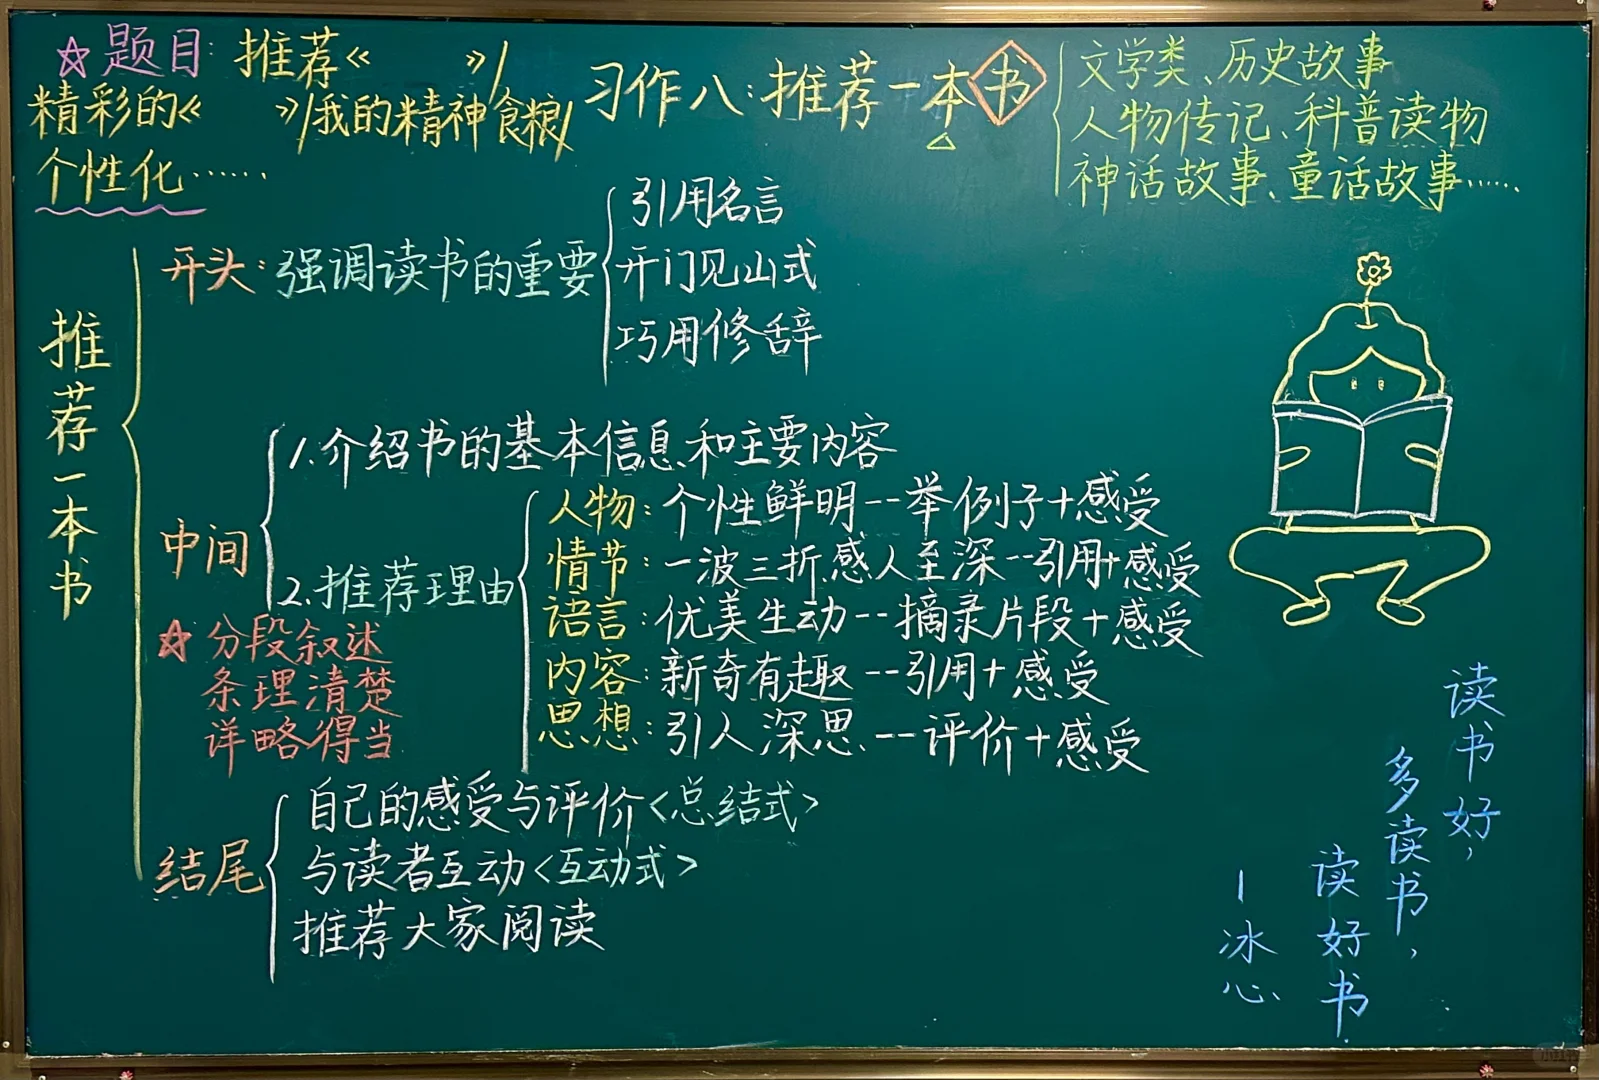 ☆题目:推荐《 》/
精彩的《 》/我的精神食粮/
个性化……
习作八:推荐一本书
文学类、历史故事
人物传记、科普读物
神话故事、童话故事……
推荐一本书
开头:强调读书的重要
引用名言
开门见山式
巧用修辞
中间
☆分段叙述
条理清楚
详略得当
1.介绍书的基本信息和主要内容
2.推荐理由
人物:个性鲜明--举例子+感受
情节:一波三折、感人至深--引用+感受
语言:优美生动--摘录片段+感受
内容:新奇有趣--引用+感受
思想:引人深思--评价+感受
结尾
自己的感受与评价<总结式>
与读者互动<互动式>
推荐大家阅读
读书好,
多读书,
读好书.
—冰心